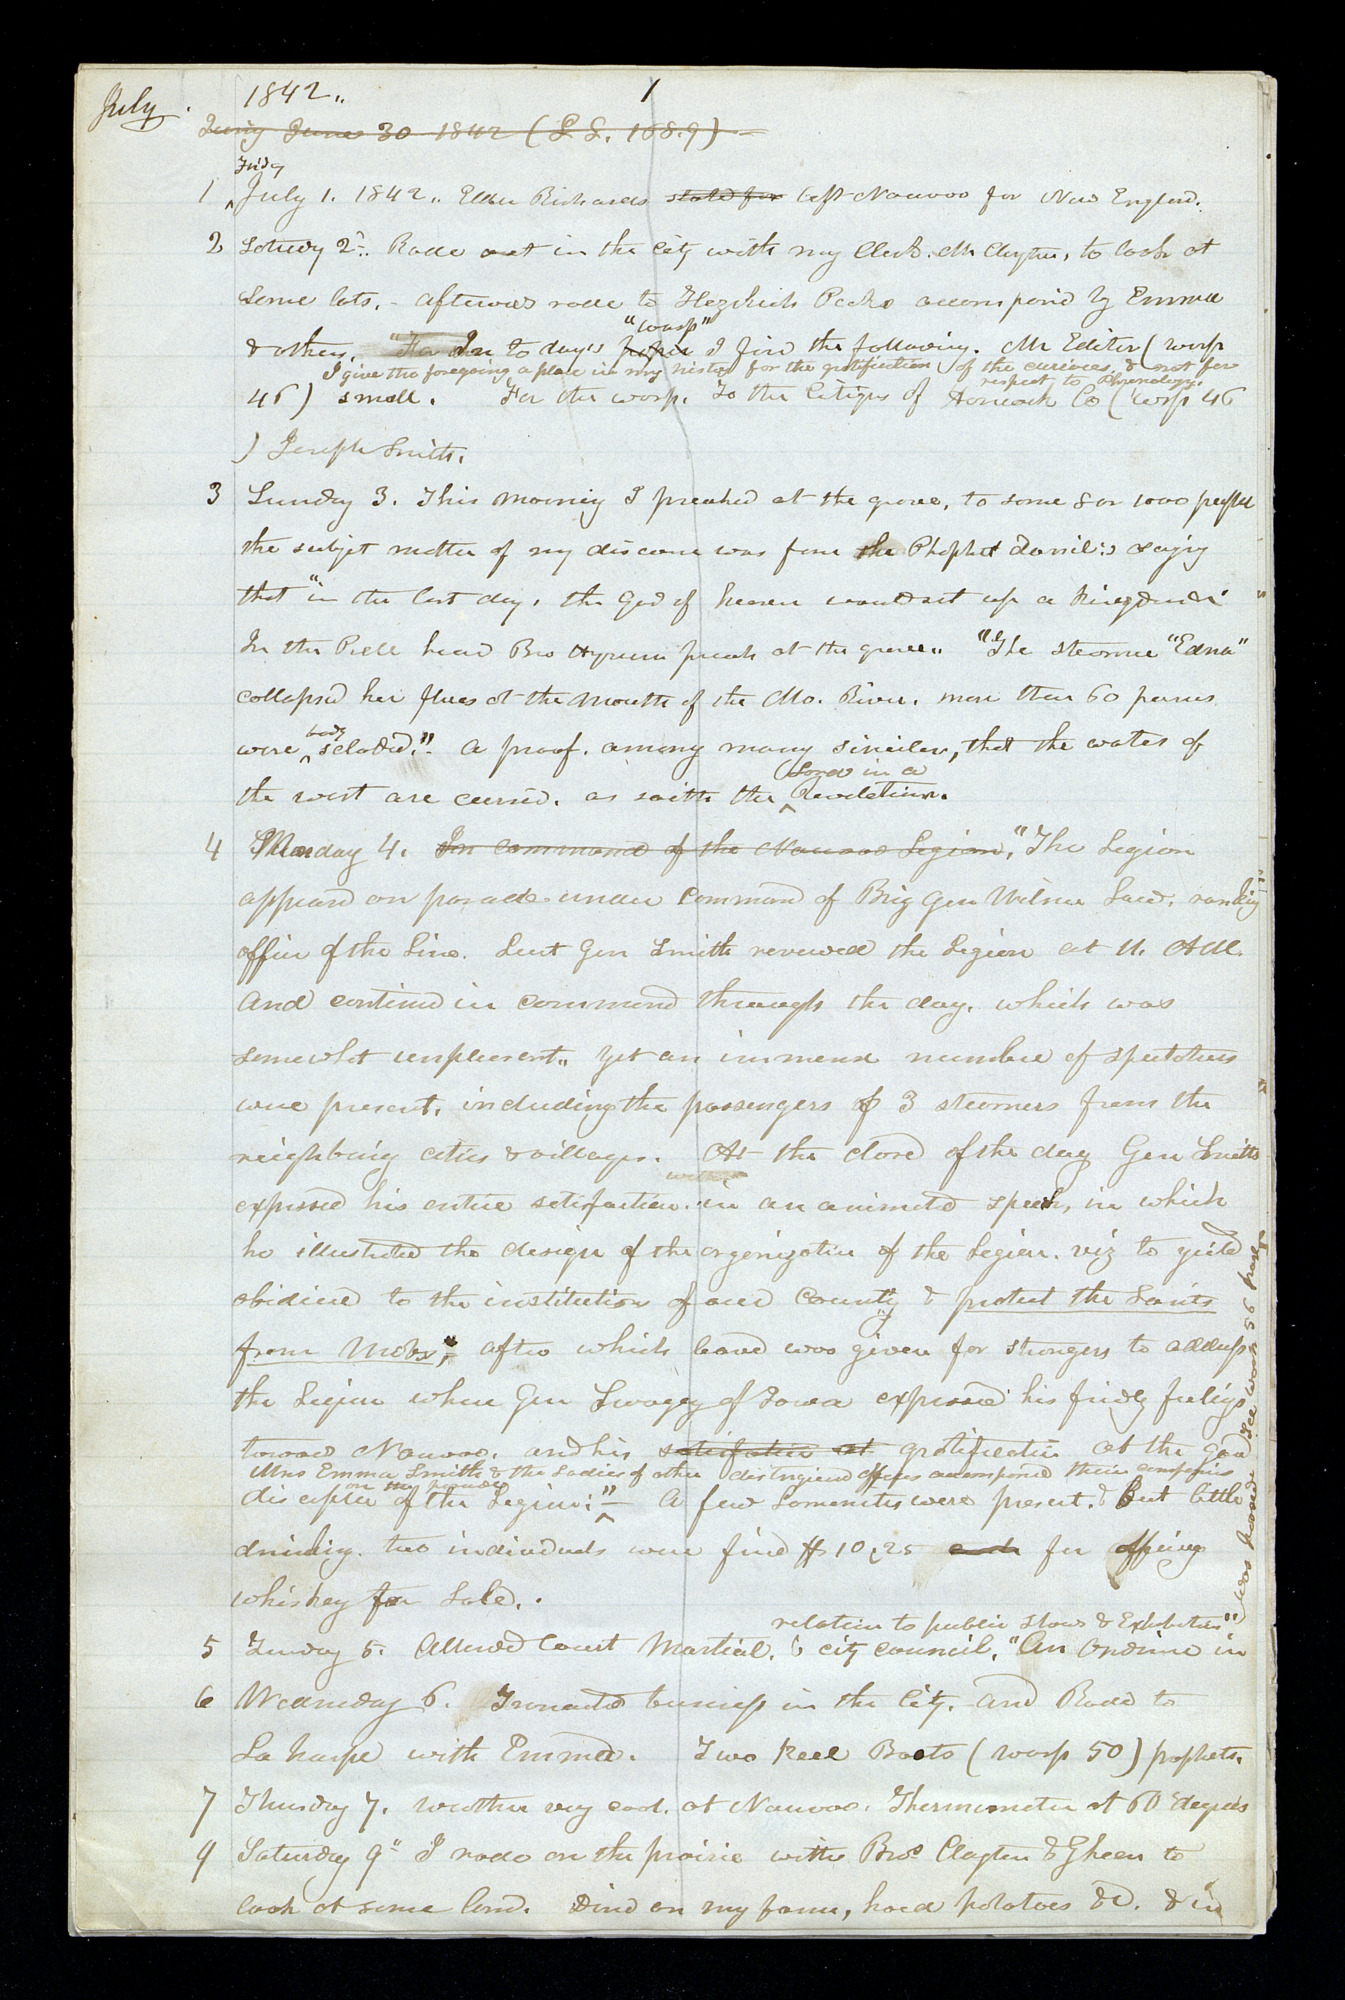 July. 1842,, 1
June 30 1842 (L. L. 168.9)
Friday
1 July 1. 1842,, Elder Richards left Nauvoo for New England.
2 Saturday 2d.. Rode out in the city with my Clerk. Mr Clayton, to look at
some lots, - afterwards rode to Hezekiah Pecks accompanied by Emma
"Wasp"
& others. In to days paper I find the following. Mr Editor (wasp
I give the foregoing a place in my history for the gratification of the curious, & not for
respect to Phrenology.
46) small. For the wasp. To the Citizens of Hancock Co (wasp 46
) Joseph Smith.
3 Sunday 3. This morning I preached at the grove, to some 8 or 1000 people
the subject matter of my discourse was from the Prophet Daniels saying
that "in the last days, the God of heaven would set up a kingdom"
In the P.M. heard Bro Hyrum preach at the grove.. "The steamer "Edna"
collapsed her flues at the mouth of the Mo. River. more than 60 persons
badly
were scalded." A proof, among many similar, that the waters of
Lord in a
the west are cursed. as saith the Revelation.
4 Monday 4. In command of the Nauvoo Legion, "The Legion
appeard on parade under command of Brig Gen Wilson Law, ranking
officer of the Line. Lieut Gen Smith reviewed the Legion at 11. A.M.
and continued in command through the day. which was
somewhat unpleasant,, yet an immense number of spectators
were present, including the passengers of 3 steamers from the
neighboring cities & villages. At the close of the day Gen Smith
within
expressed his entire satisfaction. in an animated speech, in which
he illustrated the design of the organization of the Legion. viz to yield
obidience to the institutions of our Country & protect the Saints
from Mobs", after which leave was given for strangers to address
the Legion when Gen Swazey of Iowa expressed his friendly feelings
toward Nauvoo, and his satisfaction at gratification at the good
Mrs Emma Smith & the Ladies of other distinguised officers accompanied their companions
on the parade
discipline of the Legion:"- A few Lamanites were present. & But little
drinking. two individuals were fined $10,25 each for offering
whiskey for Sale..
relation to public shows & Exhibitions"
5 Tuesday 5. Attended Court Martial. & city council, "An Ordinance in
was passed see wasp 56 page
6 Wednesday 6. Transacted business in the City. and Rode to
La harpe with Emma. Two Keel Boats (wasp 50) prophets.
7 Thursday 7. weather very cool. at Nauvoo. Thermometer at 60 degrees
9 Saturday 9" I rode on the prairie with Bros Clayton & Gheen to
look at some land. Dined on my farm, hoed potatoes &c. & in